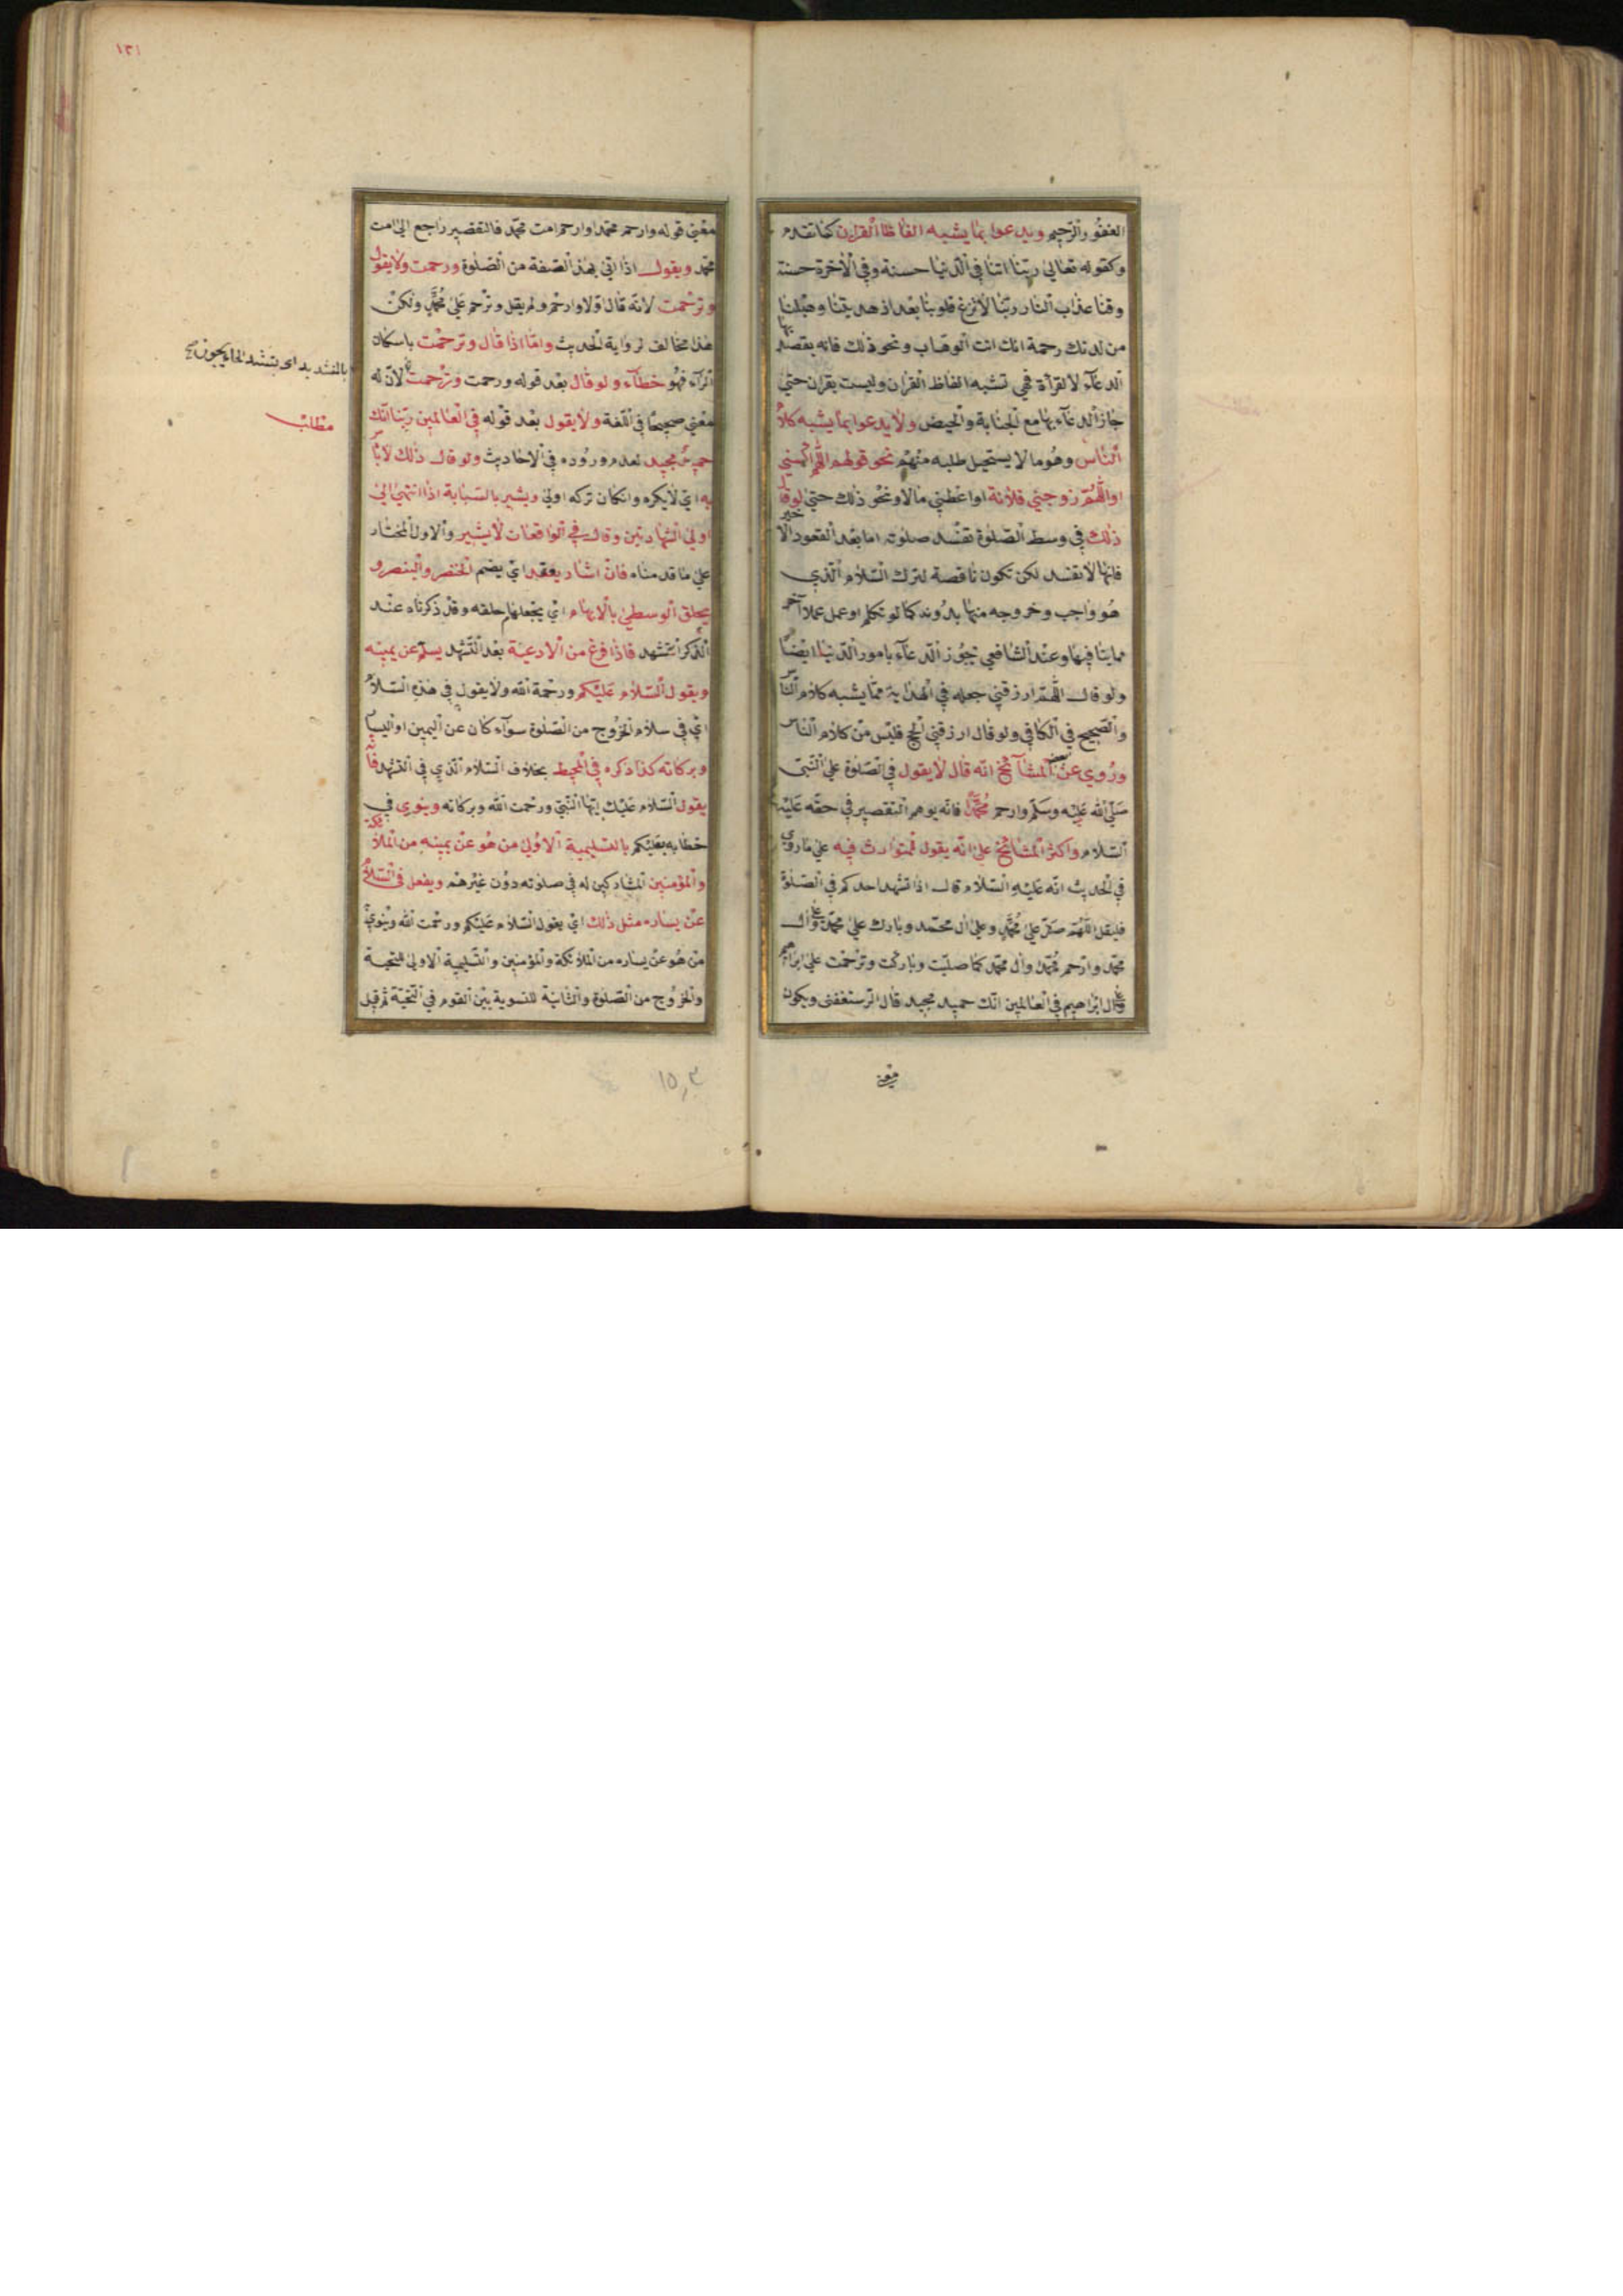 الغفور الرحيم ويدعوا بما يشبه الفاظ القرآن كما تقدم
وكقوله تعالى ربنا اتنا في الدنيا حسنة وفي الآخرة حسنة
وقنا عذاب النار ربنا لا تزغ قلوبنا بعد اذ هديتنا وهب لنا
من لدنك رحمة انك انت الوهاب ونحو ذلك فانه يقصد بها
الدعاء لا القرأة فهي تشبه الفاظ القرآن وليست بقرآن حتى
جاز الدعاء بها مع الجنابة والحيض ولا يدعوا بما يشبه كلام
الناس وهو ما لا يستحيل طلبه منهم نحو قولهم اللهم اكسني
او اللهم زوجني فلانة او اعطني مالا ونحو ذلك حتى لو قال
ذلك في وسط الصلوة تفسد صلوته اما بعد القعود الاخير
فانها لا تفسد لكن تكون ناقصة لترك السلام الذي
هو واجب وخروجه منها بدونه كما لو تكلم او عمل عملا آخر
مما ينافيها وعند الشافعي تجوز الدعاء بامور الدنيا ايضا
ولو قال اللهم ارزقني جعله في الهداية مما يشبه كلام الناس
والصحيح في الكافي ولو قال ارزقني الحج فليس من كلام الناس
وروي عن بعض المشائخ انه قال لا يقول في الصلوة على النبي
صلى الله عليه وسلم وارحم محمدا فانه يوهم التقصير في حقه عليه
السلام واكثر المشائخ على انه يقول للتوارث فيه على ما روي
في الحديث انه عليه السلام قال اذا تشهد احدكم في الصلوة
فليقل اللهم صل على محمد وعلى ال محمد وبارك على محمد وعلى ال
محمد وارحم محمدا وال محمد كما صليت وباركت وترحمت على ابراهيم
وعلى ال ابراهيم في العالمين انك حميد مجيد قال الرستغفني ويكون
معنى
١٣١
معنى قوله وارحم محمدا وارحم امت محمد فالتقصير راجع الى امت
محمد ويقول اذا اتى بهذه الصفة من الصلوة ورحمت ولا يقول
وترحمت لانه قال اولا وارحم ولم يقل وترحم على محمد ولكن
هذا مخالف لرواية الحديث واما اذا قال وترحمت باسكان
الراء فهو خطاء ولو قال بعد قوله ورحمت وترحمت لان له
معنى صحيحا في اللغة ولا يقول بعد قوله في العالمين ربنا انك
حميد مجيد لعدم وروده في الاحاديث ولو قال ذلك لا بأس
به اي لا يكره وان كان تركه اولى ويشير بالسبابة اذا انتهى الى
اولى الشهادتين وقال في الواقعات لا يشير والاول المختار
على ما قدمناه فان اشار يعقد اي يضم الخنصر والبنصر و
يحلق الوسطى بالابهام اي يجعلها حلقه وقد ذكرناه عند
الذكر التشهد فاذا فرغ من الادعية بعد التشهد يسلم عن يمينه
ويقول السلام عليكم ورحمة الله ولا يقول في هذه السلام
اي في سلام الخروج من الصلوة سواء كان عن اليمين او اليسار
وبركاته كذا ذكره في المحيط بخلاف السلام الذي في التشهد فانه
يقول السلام عليك ايها النبي ورحمت الله وبركاته وينوي في
خطابه بعليكم بالتسليمة الاولى من هو عن يمينه من الملائكة
والمؤمنين المشاركين له في صلوته دون غيرهم ويفعل في السلام
عن يساره مثل ذلك اي يقول السلام عليكم ورحمت الله وينوي
من هو عن يساره من الملائكة والمؤمنين والتسليمة الاولى للتحية
والخروج من الصلوة والثانية للتسوية بين القوم في التحية ثم قيل
بالتشديد اي بتشديد الحاء يجوز
مطلب